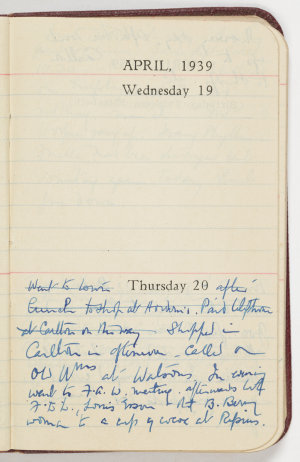 APRIL, 1939
Wednesday 19
Went to town Thursday 20 after
lunch to shop at Arden's. Paid
at Carlton on the way. Shopped in
Carlton in afternoon. Called on
Old W at Watsons. In evening
went to F.A.W. meeting, afterwards with
F.D.L., Louis & B.
woman to a cup of cocoa at